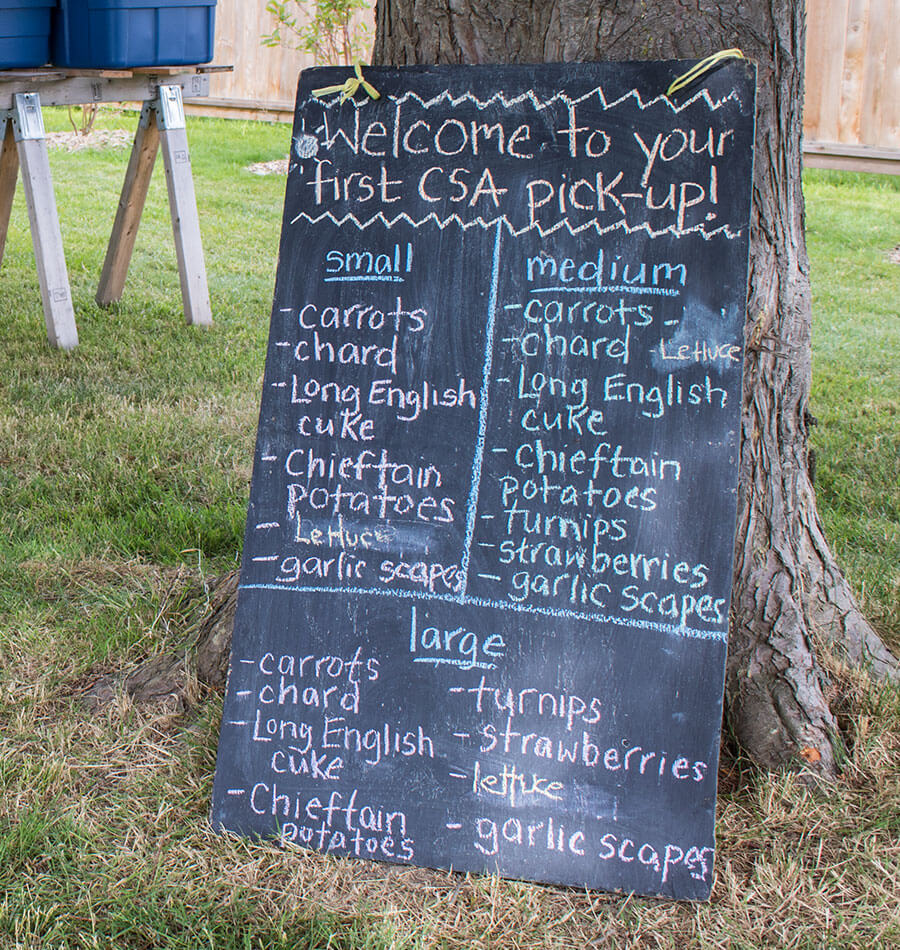 Welcome to your
first CSA pick-up!
small
- carrots
- chard
- Long English
cuke
- Chieftain
potatoes
- Lettuce
- garlic scapes
medium
- carrots -
- chard Lettuce
- Long English
cuke
- Chieftain
potatoes
- turnips
- strawberries
- garlic scapes
large
- carrots
- chard
- Long English
cuke
- Chieftain
potatoes
- turnips
- strawberries
- lettuce
- garlic scapes